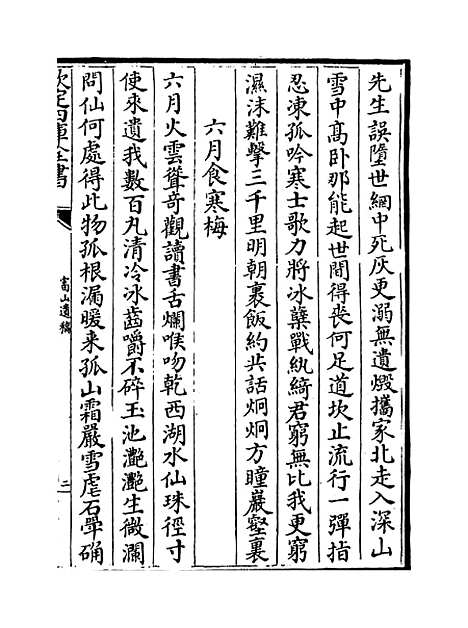 先生誤墮世網中死灰更溺無遺燬攜家北走入深山
雪中高卧那能起世間得喪何足道坎止流行一彈指
忍凍孤吟寒士歌力將冰蘖戰紈綺君窮無比我更窮
濕沫難擊三千里明朝裹飯約共話炯炯方瞳巖壑裏
六月食寒梅
六月火雲聳奇觀讀書舌爛喉吻乾西湖水仙珠徑寸
使來遺我數百丸清冷冰齒嚼不碎玉池灔灔生微瀾
問仙何處得此物孤根漏暖来孤山霜嚴雪虐石犖确
欽定四庫全書
富山遺稿
二